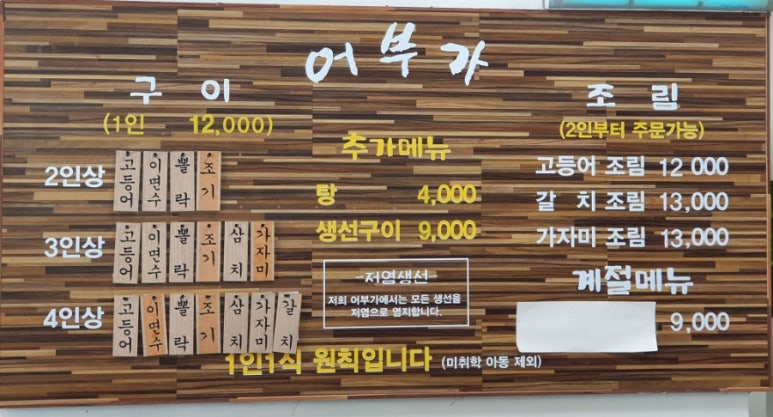 어부가
구이
(1인 12,000)
2인상 고등어 이면수 뽈락 조기
3인상 고등어 이면수 뽈락 조기 삼치 가자미
4인상 고등어 이면수 뽈락 조기 삼치 가자미 갈치
추가메뉴
탕 4,000
생선구이 9,000
저염생선
저희 어부가에서는 모든 생선을
저염으로 염지합니다.
조림
(2인부터 주문가능)
고등어 조림 12 000
갈 치 조림 13,000
가자미 조림 13,000
계절메뉴
9,000
1인1식 원칙입니다 (미취학 아동 제외)